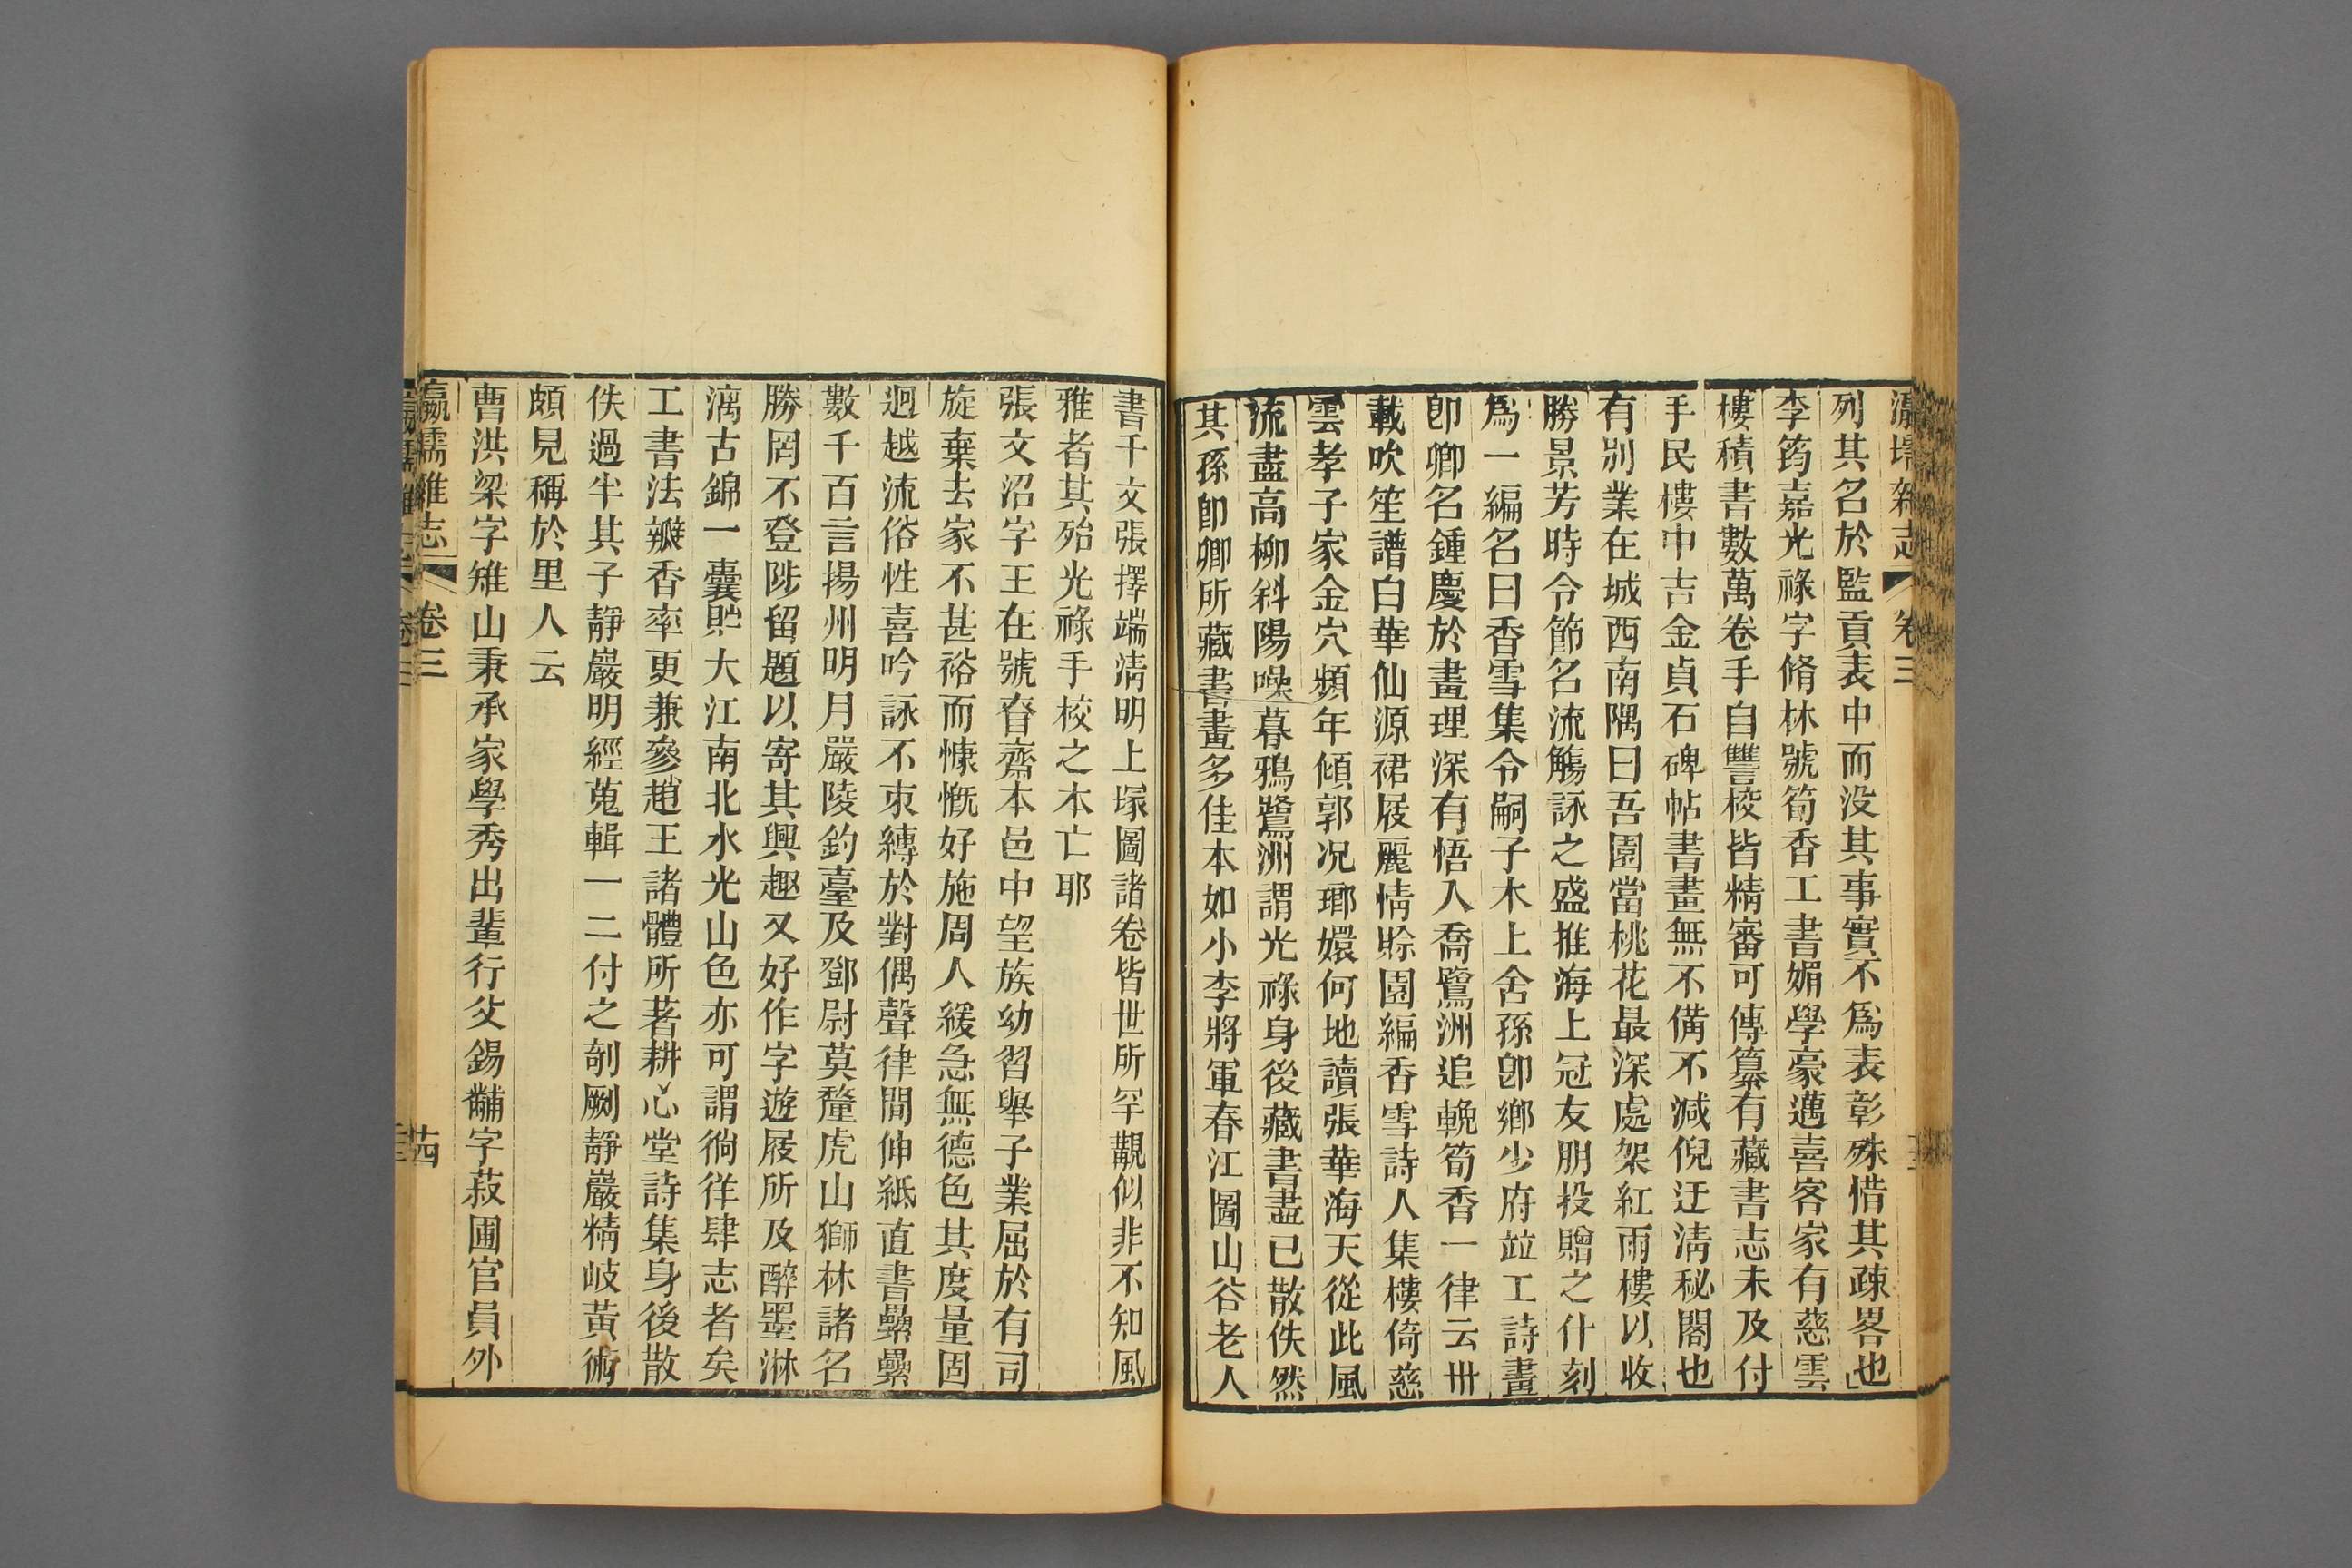 瀛壖雜志 卷三
列其名於監貢表中而没其事實不爲表彰殊惜其疎畧也
李筠嘉光祿字脩林號筍香工書媚學豪邁喜客家有慈雲
樓積書數萬卷手自讐校皆精審可傳纂有藏書志未及付
手民樓中吉金貞石碑帖書畫無不備不減倪迂淸秘閣也
有別業在城西南隅曰吾園當桃花最深處架紅雨樓以收
勝景芳時令節名流觴詠之盛推海上冠友朋投贈之什刻
爲一編名曰香雪集令嗣子木上舍孫卽鄉少府竝工詩畫
卽卿名鍾慶於畫理深有悟入喬鷺洲追輓筍香一律云卅
載吹笙譜白華仙源裙屐麗情賒園編香雪詩人集樓倚慈
雲孝子家金穴頻年傾郭况瑯嬛何地讀張華海天從此風
流盡高柳斜陽噪暮鴉鷺洲謂光祿身後藏書盡已散佚然
其孫卽卿所藏書畫多佳本如小李將軍春江圖山谷老人
書千文張擇端淸明上塚圖諸卷皆世所罕觀似非不知風
雅者其殆光祿手校之本亡耶
張文沼字王在號眘齋本邑中望族幼習舉子業屈於有司
旋棄去家不甚裕而慷慨好施周人緩急無德色其度量固
迥越流俗性喜吟詠不朿縛於對偶聲律間伸紙直書纍纍
數千百言揚州明月嚴陵釣臺及鄧尉莫釐虎山獅林諸名
勝罔不登陟留題以寄其興趣又好作字遊屐所及醉墨淋
漓古錦一囊貯大江南北水光山色亦可謂徜徉肆志者矣
工書法瓣香率更兼參趙王諸體所著耕心堂詩集身後散
佚過半其子靜巖明經蒐輯一二付之剞劂靜巖精岐黃術
頗見稱於里人云
曹洪梁字雉山秉承家學秀出輩行父錫黼字菽圃官員外
瀛壖雜志 卷三 茁